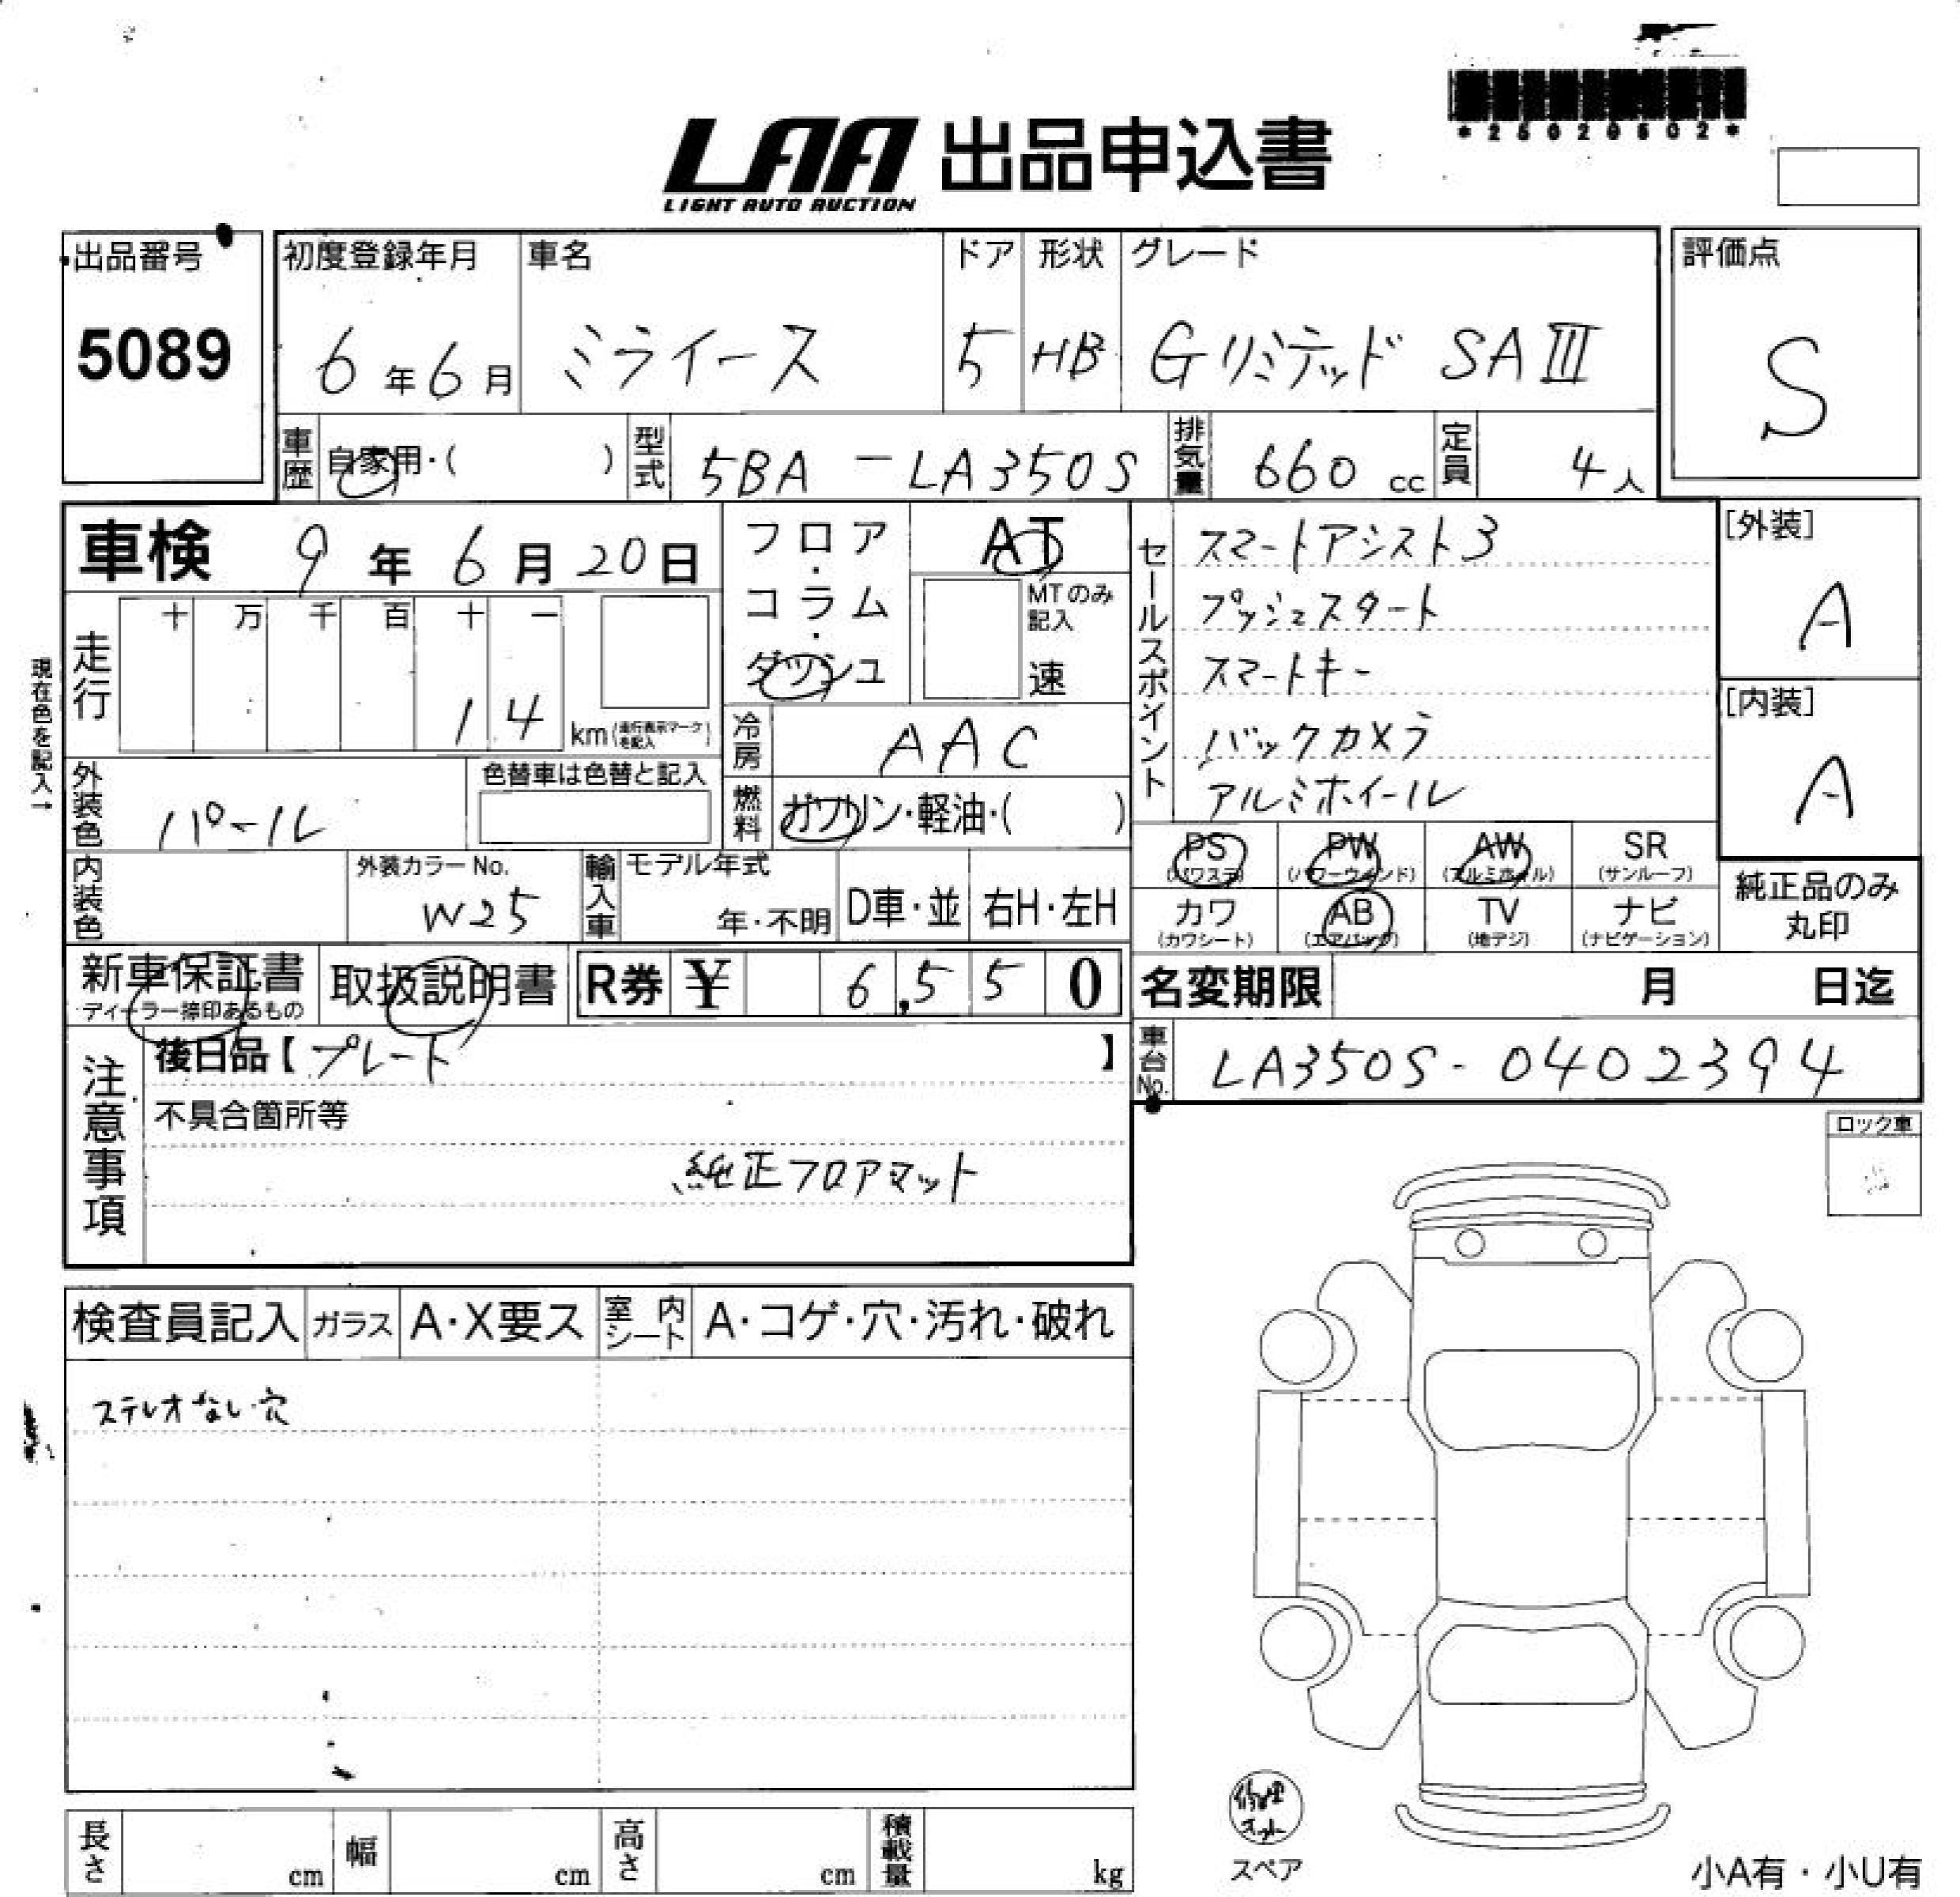 *25020502*
LAA 出品申込書
LIGHT AUTO AUCTION
出品番号
5089
初度登録年月
6年6月
車名
ミライース
ドア
5
形状
HB
グレード
Gリミテッド SAⅢ
評価点
S
車歴
自家用・( )
型式
5BA-LA350S
排気量
660 cc
定員
4人
車検 9年6月20日
フロア・コラム・ダッシュ
AT
MTのみ記入
速
セールスポイント
スマートアシスト3
プッシュスタート
スマートキー
バックカメラ
アルミホイール
[外装]
A
[内装]
A
現在色を記入→
走行
十 万 千 百 十 一
14
km(走行表示マークを記入)
冷房
AAC
外装色
パール
色替車は色替と記入
燃料
ガソリン・軽油・( )
内装色
外装カラーNo.
W25
輸入車
モデル年式
年・不明
D車・並
右H・左H
PS
(パワステ)
PW
(パワーウィンド)
AW
(アルミホイル)
SR
(サンルーフ)
カワ
(カワシート)
AB
(エアバッグ)
TV
(地デジ)
ナビ
(ナビゲーション)
純正品のみ
丸印
新車保証書
ディーラー捺印あるもの
取扱説明書
R券 ¥ 6,550
名変期限 月 日迄
注意事項
後日品【プレート】
不具合箇所等
純正フロアマット
車台No.
LA350S-0402394
ロック車
検査員記入
ガラス
A・X要ス
室内シート
A・コゲ・穴・汚れ・破れ
ステレオなし穴
長さ cm
幅 cm
高さ cm
積載量 kg
修理
キット
スペア
小A有・小U有